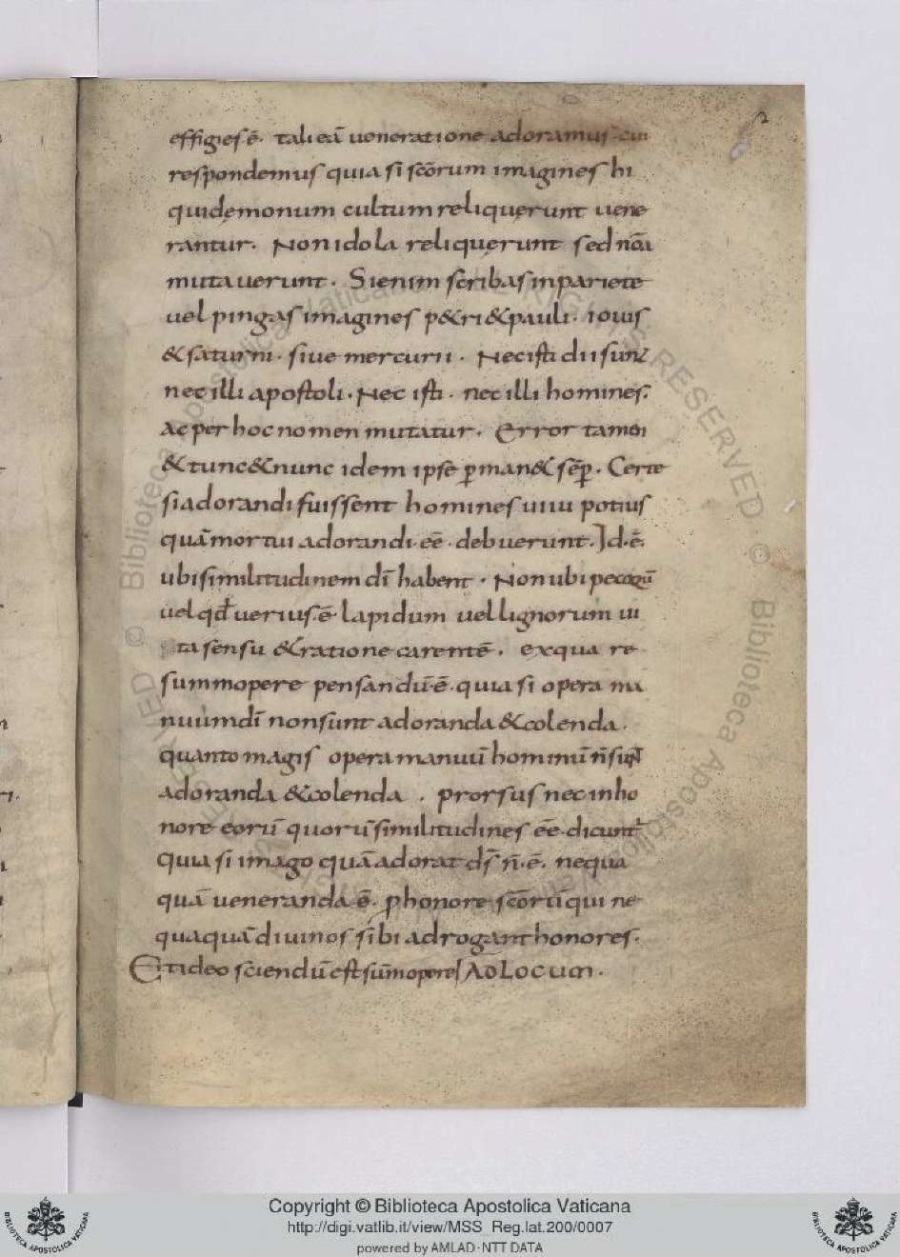 effigies ē. tali eā ueneratione adoramus. cui
respondemus quia si scōrum imagines hi
qui demonum cultum reliquęrunt uene
rantur. Non idola reliquęrunt sed nōa
mutauerunt. Si enim scribas in pariete
uel pingas imagines p&ri & pauli. iouis
& saturni. siue mercurii. Nec isti dii sunt
nec illi apostoli. Nec isti. nec illi homines.
ac per hoc nomen mutatur. Error tamen
& tunc & nunc idem ipse ꝑman& sēꝑ. Certe
si adorandi fuissent homines uiui potius
quā mortui adorandi. eē. debuerunt. Id. ē.
ubi similitudinem dī habent. Non ubi pecorū
uel qđ uerius. ē. lapidum uel lignorum ui
ta sensu & ratione carentē. ex qua re
summopere pensandū. ē. quia si opera ma
nuum dī non sunt adoranda & colenda.
quanto magis opera manuū hominū ñ sunt
adoranda & colenda. prorsus nec in ho
nore eorū quorū similitudines eē. dicunt̄
Quia si imago quā adorat dś ñ. ē. nequa
quā ueneranda. ē. p honore scōrū qui ne
quaquā diuinos sibi adrogant honores.
Et ideo sciendū est sūmopere AD LOCUM.
Copyright © Biblioteca Apostolica Vaticana
http://digi.vatlib.it/view/MSS_Reg.lat.200/0007
powered by AMLAD - NTT DATA